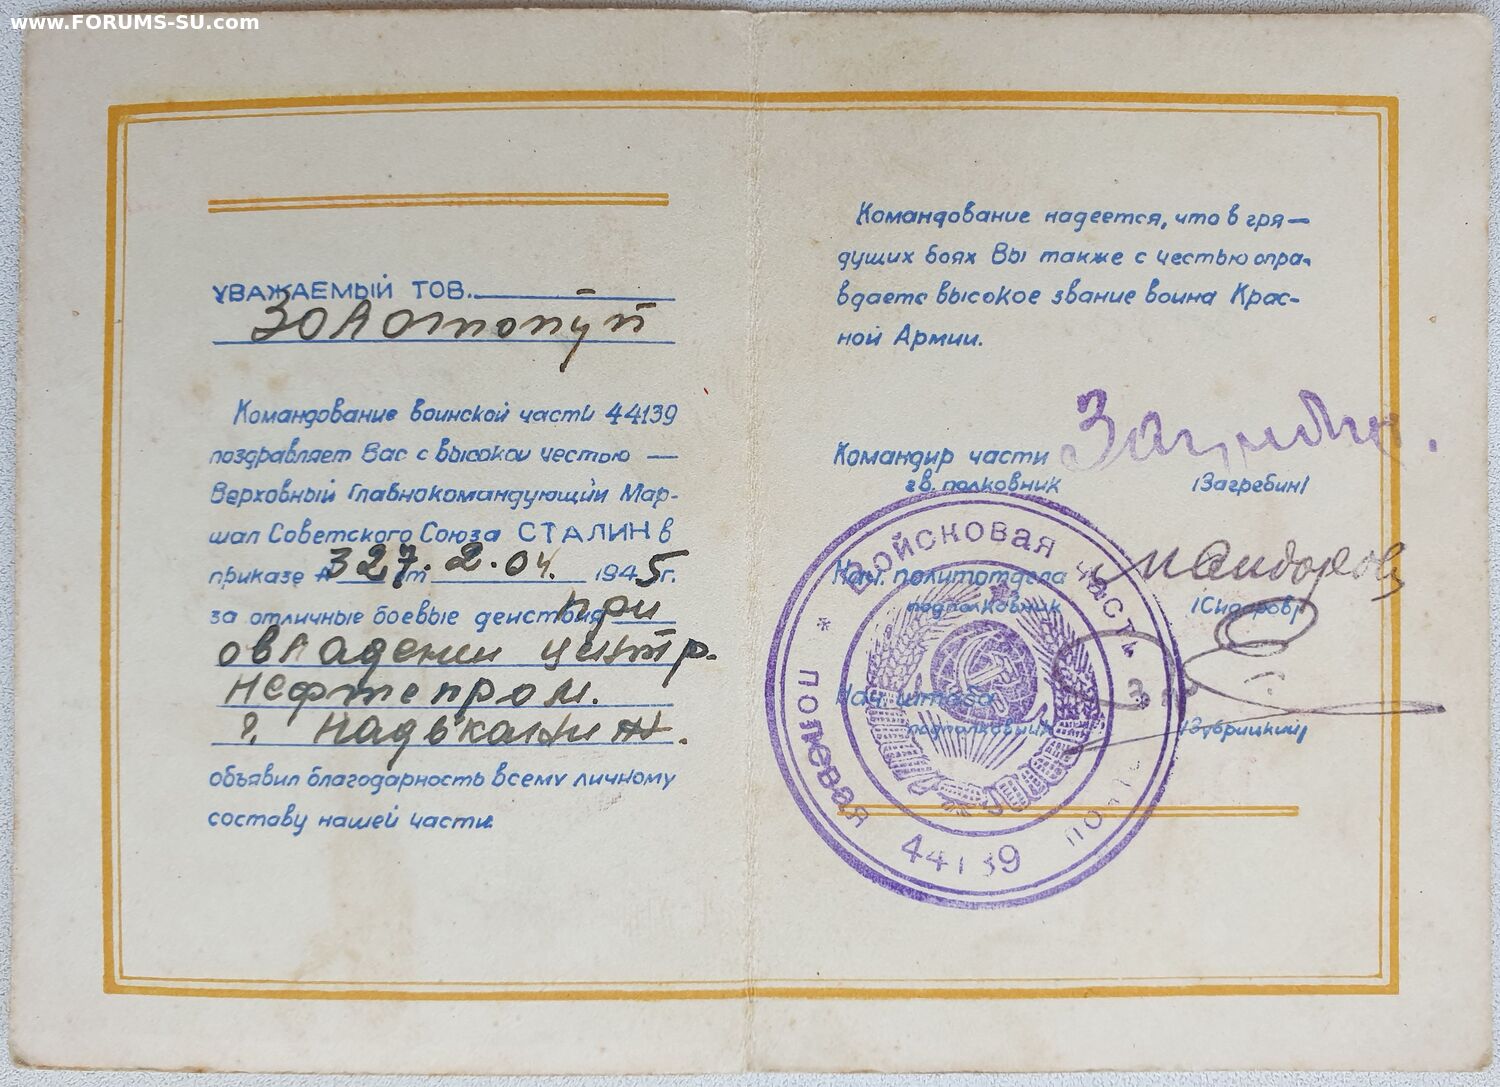 www.FORUMS-SU.com
УВАЖАЕМЫЙ ТОВ.
Золотопуп
Командование воинской части 44139
поздравляет Вас с высокой честью —
Верховный Главнокомандующий Мар-
шал Советского Союза СТАЛИН в
приказе № 327 от 2.04. 1945 г.
за отличные боевые действия при
овладении центр.
нефтепром.
г. Надьканиж.
объявил благодарность всему личному
составу нашей части.
Командование надеется, что в гря-
дущих боях Вы также с честью опра-
вдаете высокое звание воина Крас-
ной Армии.
Командир части
гв. полковник /Загребин/
Нач. политотдела
подполковник /Сидоров/
Нач. штаба
подполковник
Войсковая часть
полевая
44139